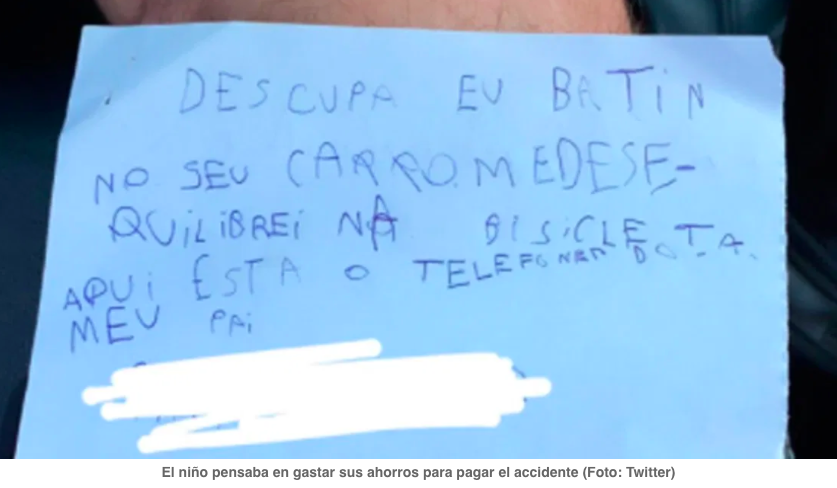 DESCUPA EU BATIN
NO SEU CARRO. MEDESE-
QUILIBREI NA BISICLETA.
AQUI ESTA O TELEFONER DO
MEU PAI
El niño pensaba en gastar sus ahorros para pagar el accidente (Foto: Twitter)